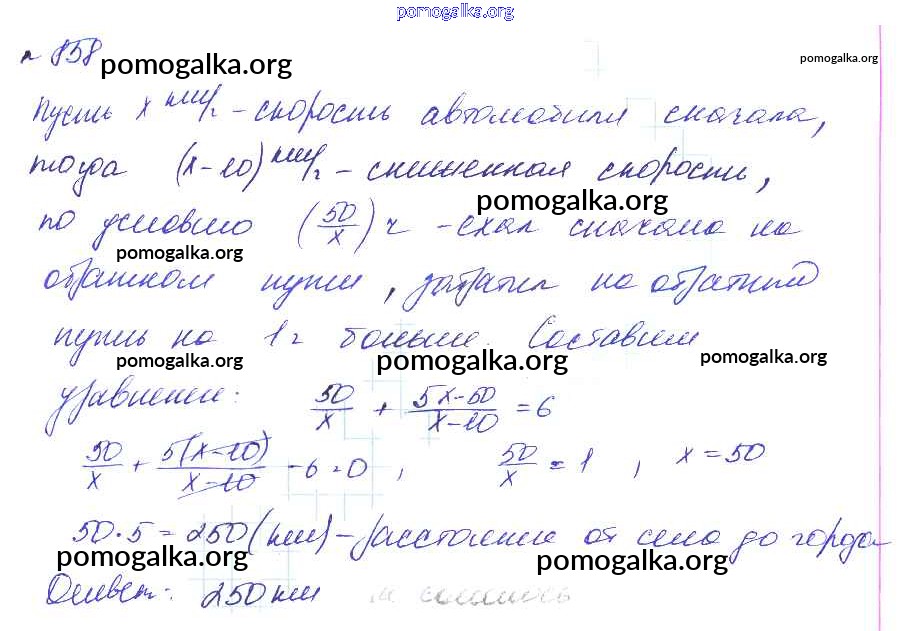 pomogalka.org
№ 858
pomogalka.org
pomogalka.org
Пусть x км/г – скорость автомобиля сначала,
тогда (x-10) км/г – сниженная скорость,
pomogalka.org
по условию (50/x) ч – ехал сначала на
pomogalka.org
обратном пути, затратил на обратный
путь на 1 г больше. Составим
pomogalka.org pomogalka.org pomogalka.org
уравнение: 50/x + 5x-50/x-10 = 6
50/x + 5(x-10)/x-10 - 6 = 0, 50/x = 1, x = 50
50·5 = 250 (км) – расстояние от села до города
pomogalka.org pomogalka.org
Ответ: 250 км